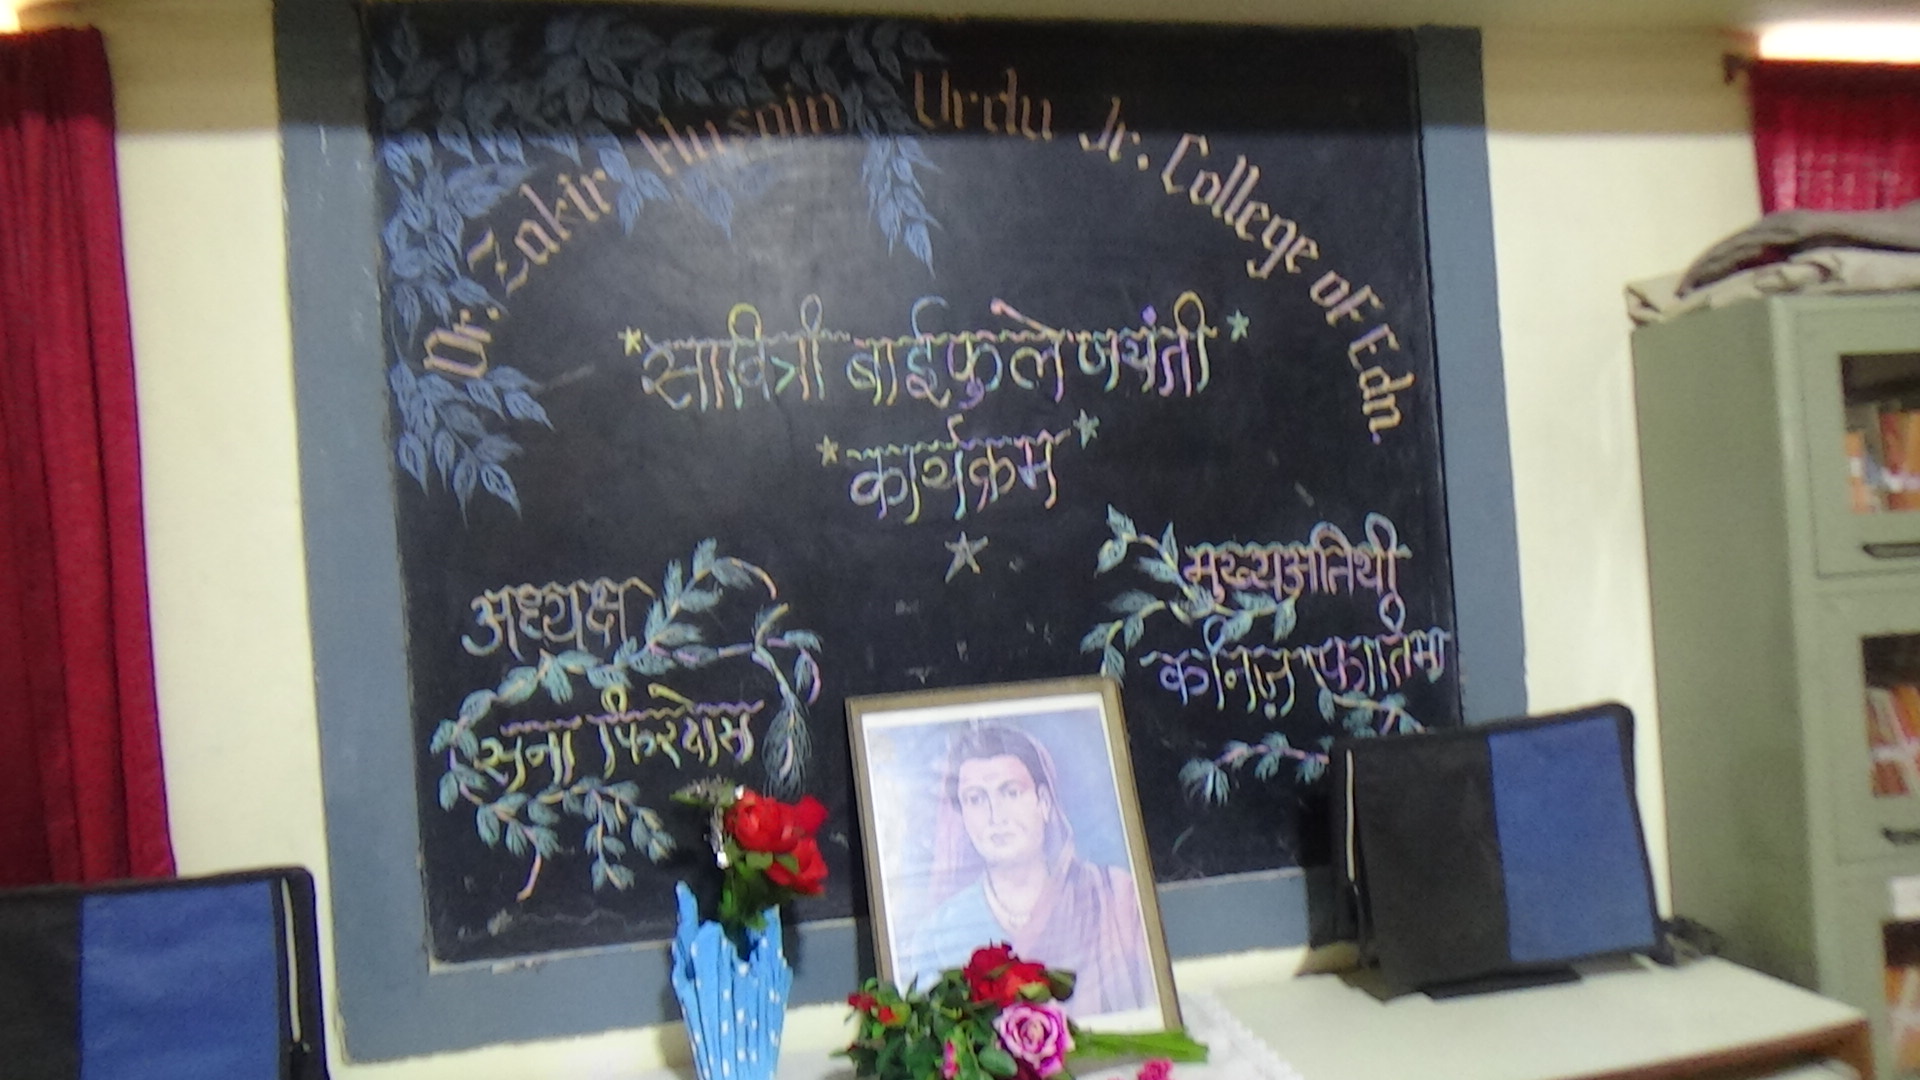 Dr. Zakir Husain Urdu Jr. College of Edn.
सावित्री बाईफुले जयंती
कार्यक्रम
अध्यक्ष
सना फिरदोस
मुख्यअतिथी
कनिज़ फातिमा